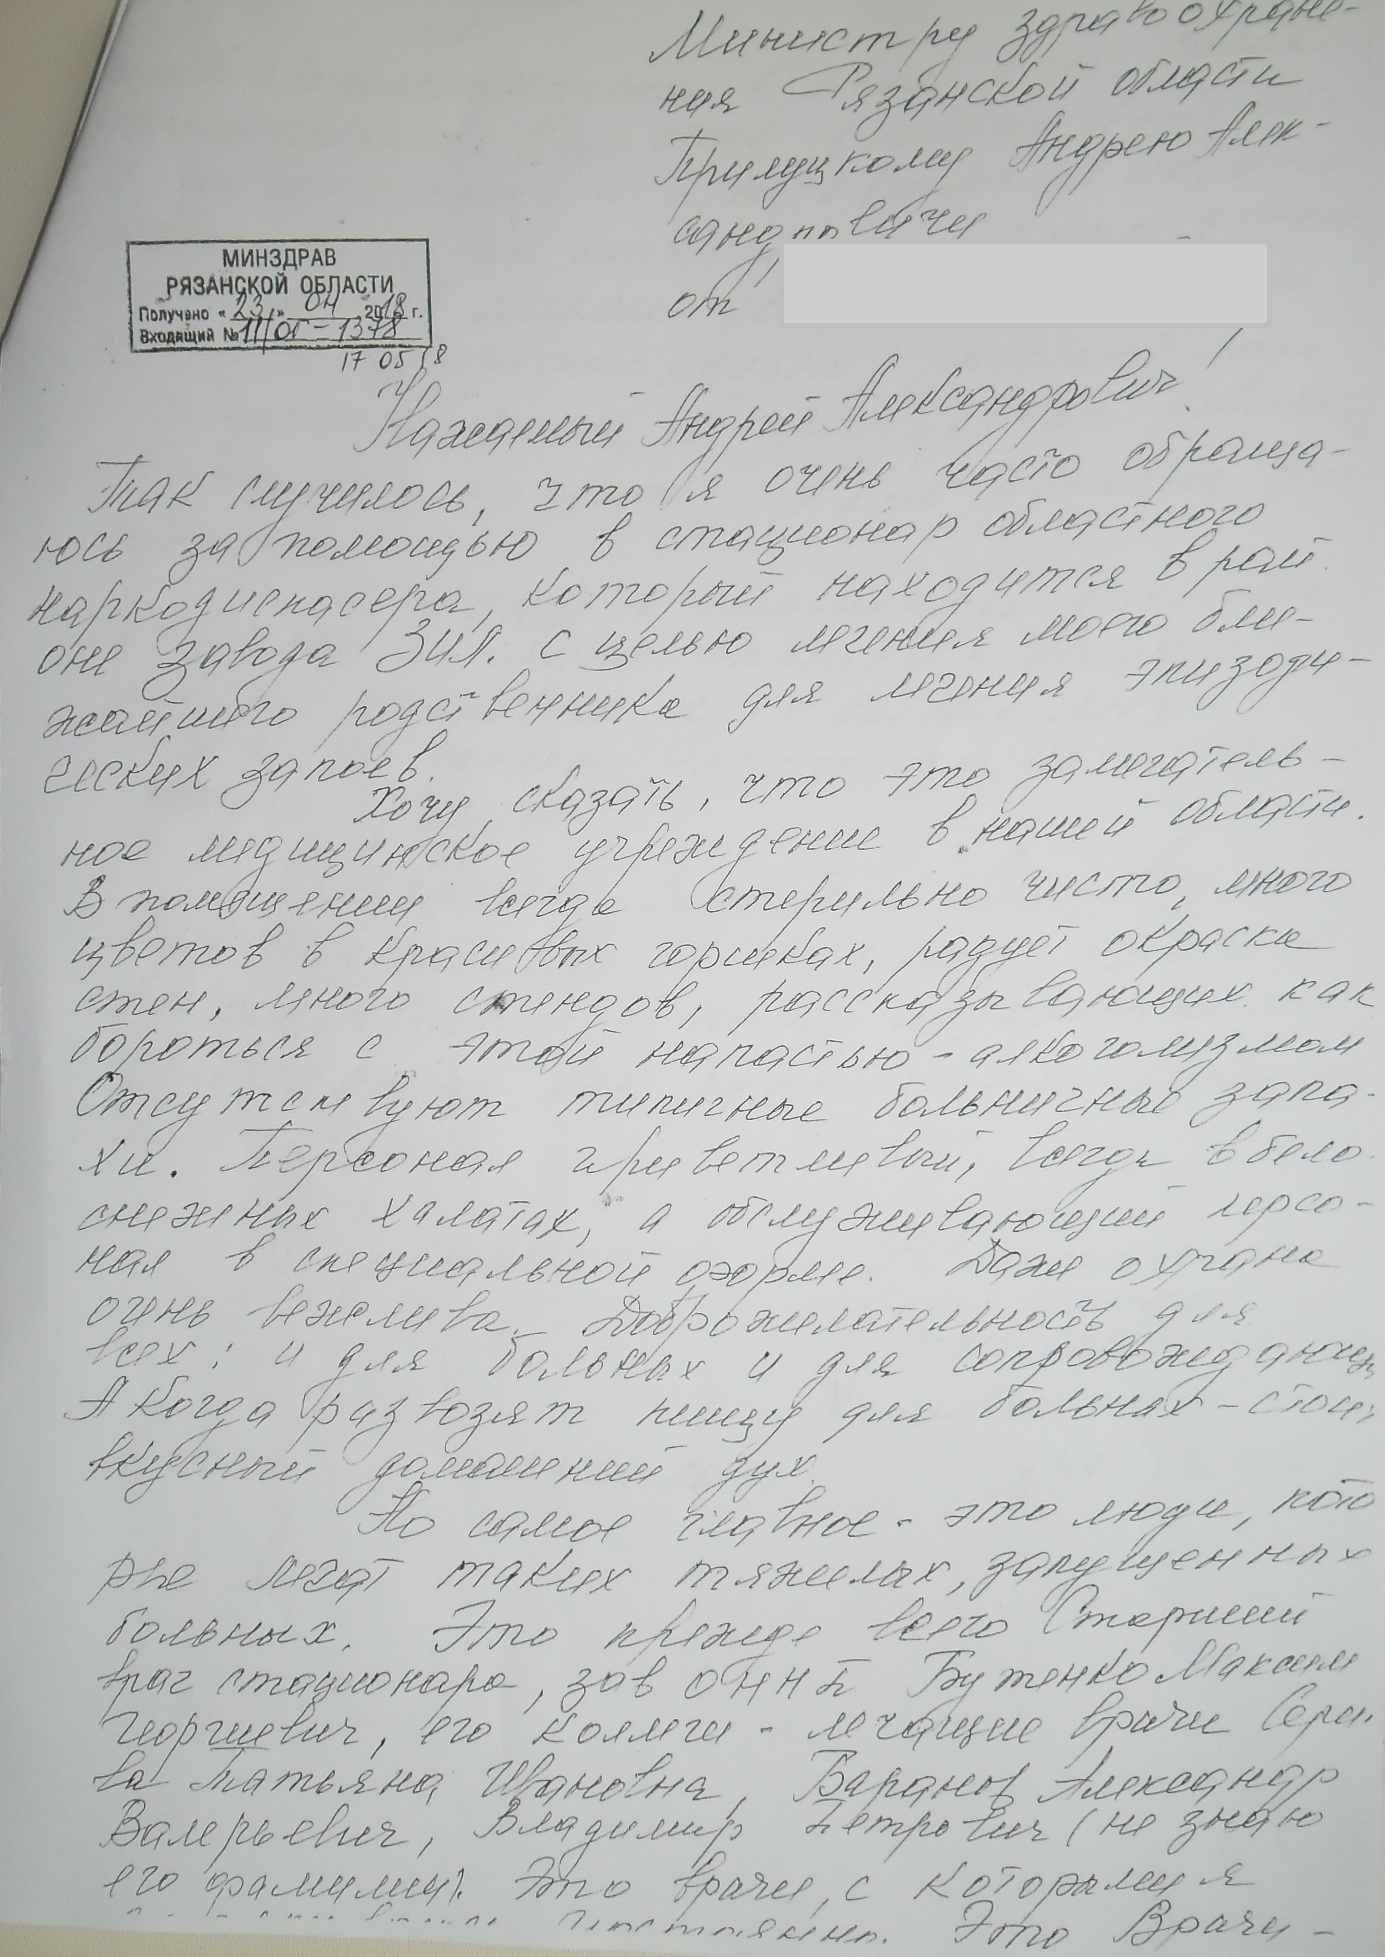 Министру здравоохране-
ния Рязанской области
Прилуцкому Андрею Алек-
сандровичу
от
МИНЗДРАВ
РЯЗАНСКОЙ ОБЛАСТИ
Получено «23» 04 2018 г.
Входящий № 111/ОГ-1378
17 05 18
Уважаемый Андрей Александрович!
Так случилось, что я очень часто обраща-
юсь за помощью в стационар областного
наркодиспасера, который находится в рай
оне завода ЗИЛ. с целью лечения моего бли-
жайшего родственника для лечения эпизоди-
ческих запоев.
Хочу сказать, что это замечатель-
ное медицинское учреждение в нашей области.
В помещении всегда стерильно чисто, много
цветов в красивых горшках, радует окраска
стен, много стендов, рассказывающих как
бороться с этой напастью - алкоголизмом
Отсутствуют типичные больничные запа-
хи. Персонал приветливый, всегда в бело
снежных халатах, а обслуживающий персо-
нал в специальной форме. Даже охрана
очень вежлива. Доброжелательность для
всех: и для больных и для сопровождающих
А когда развозят пищу для больных - стоит
вкусный домашний дух.
Но самое главное - это люди, кото
рые лечат таких тяжелых, запущенных
больных. Это прежде всего Старший
врач стационара, зав ОННП Бутенко Максим
Георгиевич, его коллеги - лечащие врачи
Татьяна Ивановна, Баранов Александр
Валерьевич, Владимир Петрович (не знаю
его фамилии). Это врачи, с которыми я
постоянно. Это Врачи -